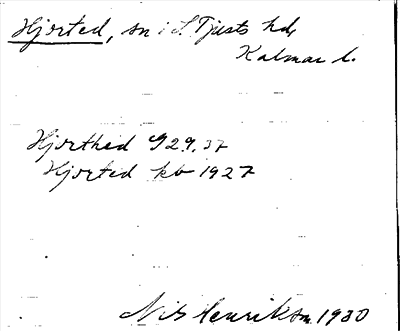 Hjorted, sn i S. Tjusts hd,
Kalmar l.
Hjorthed G29.37
Hjorted kb 1927
Nils Henriksn. 1930